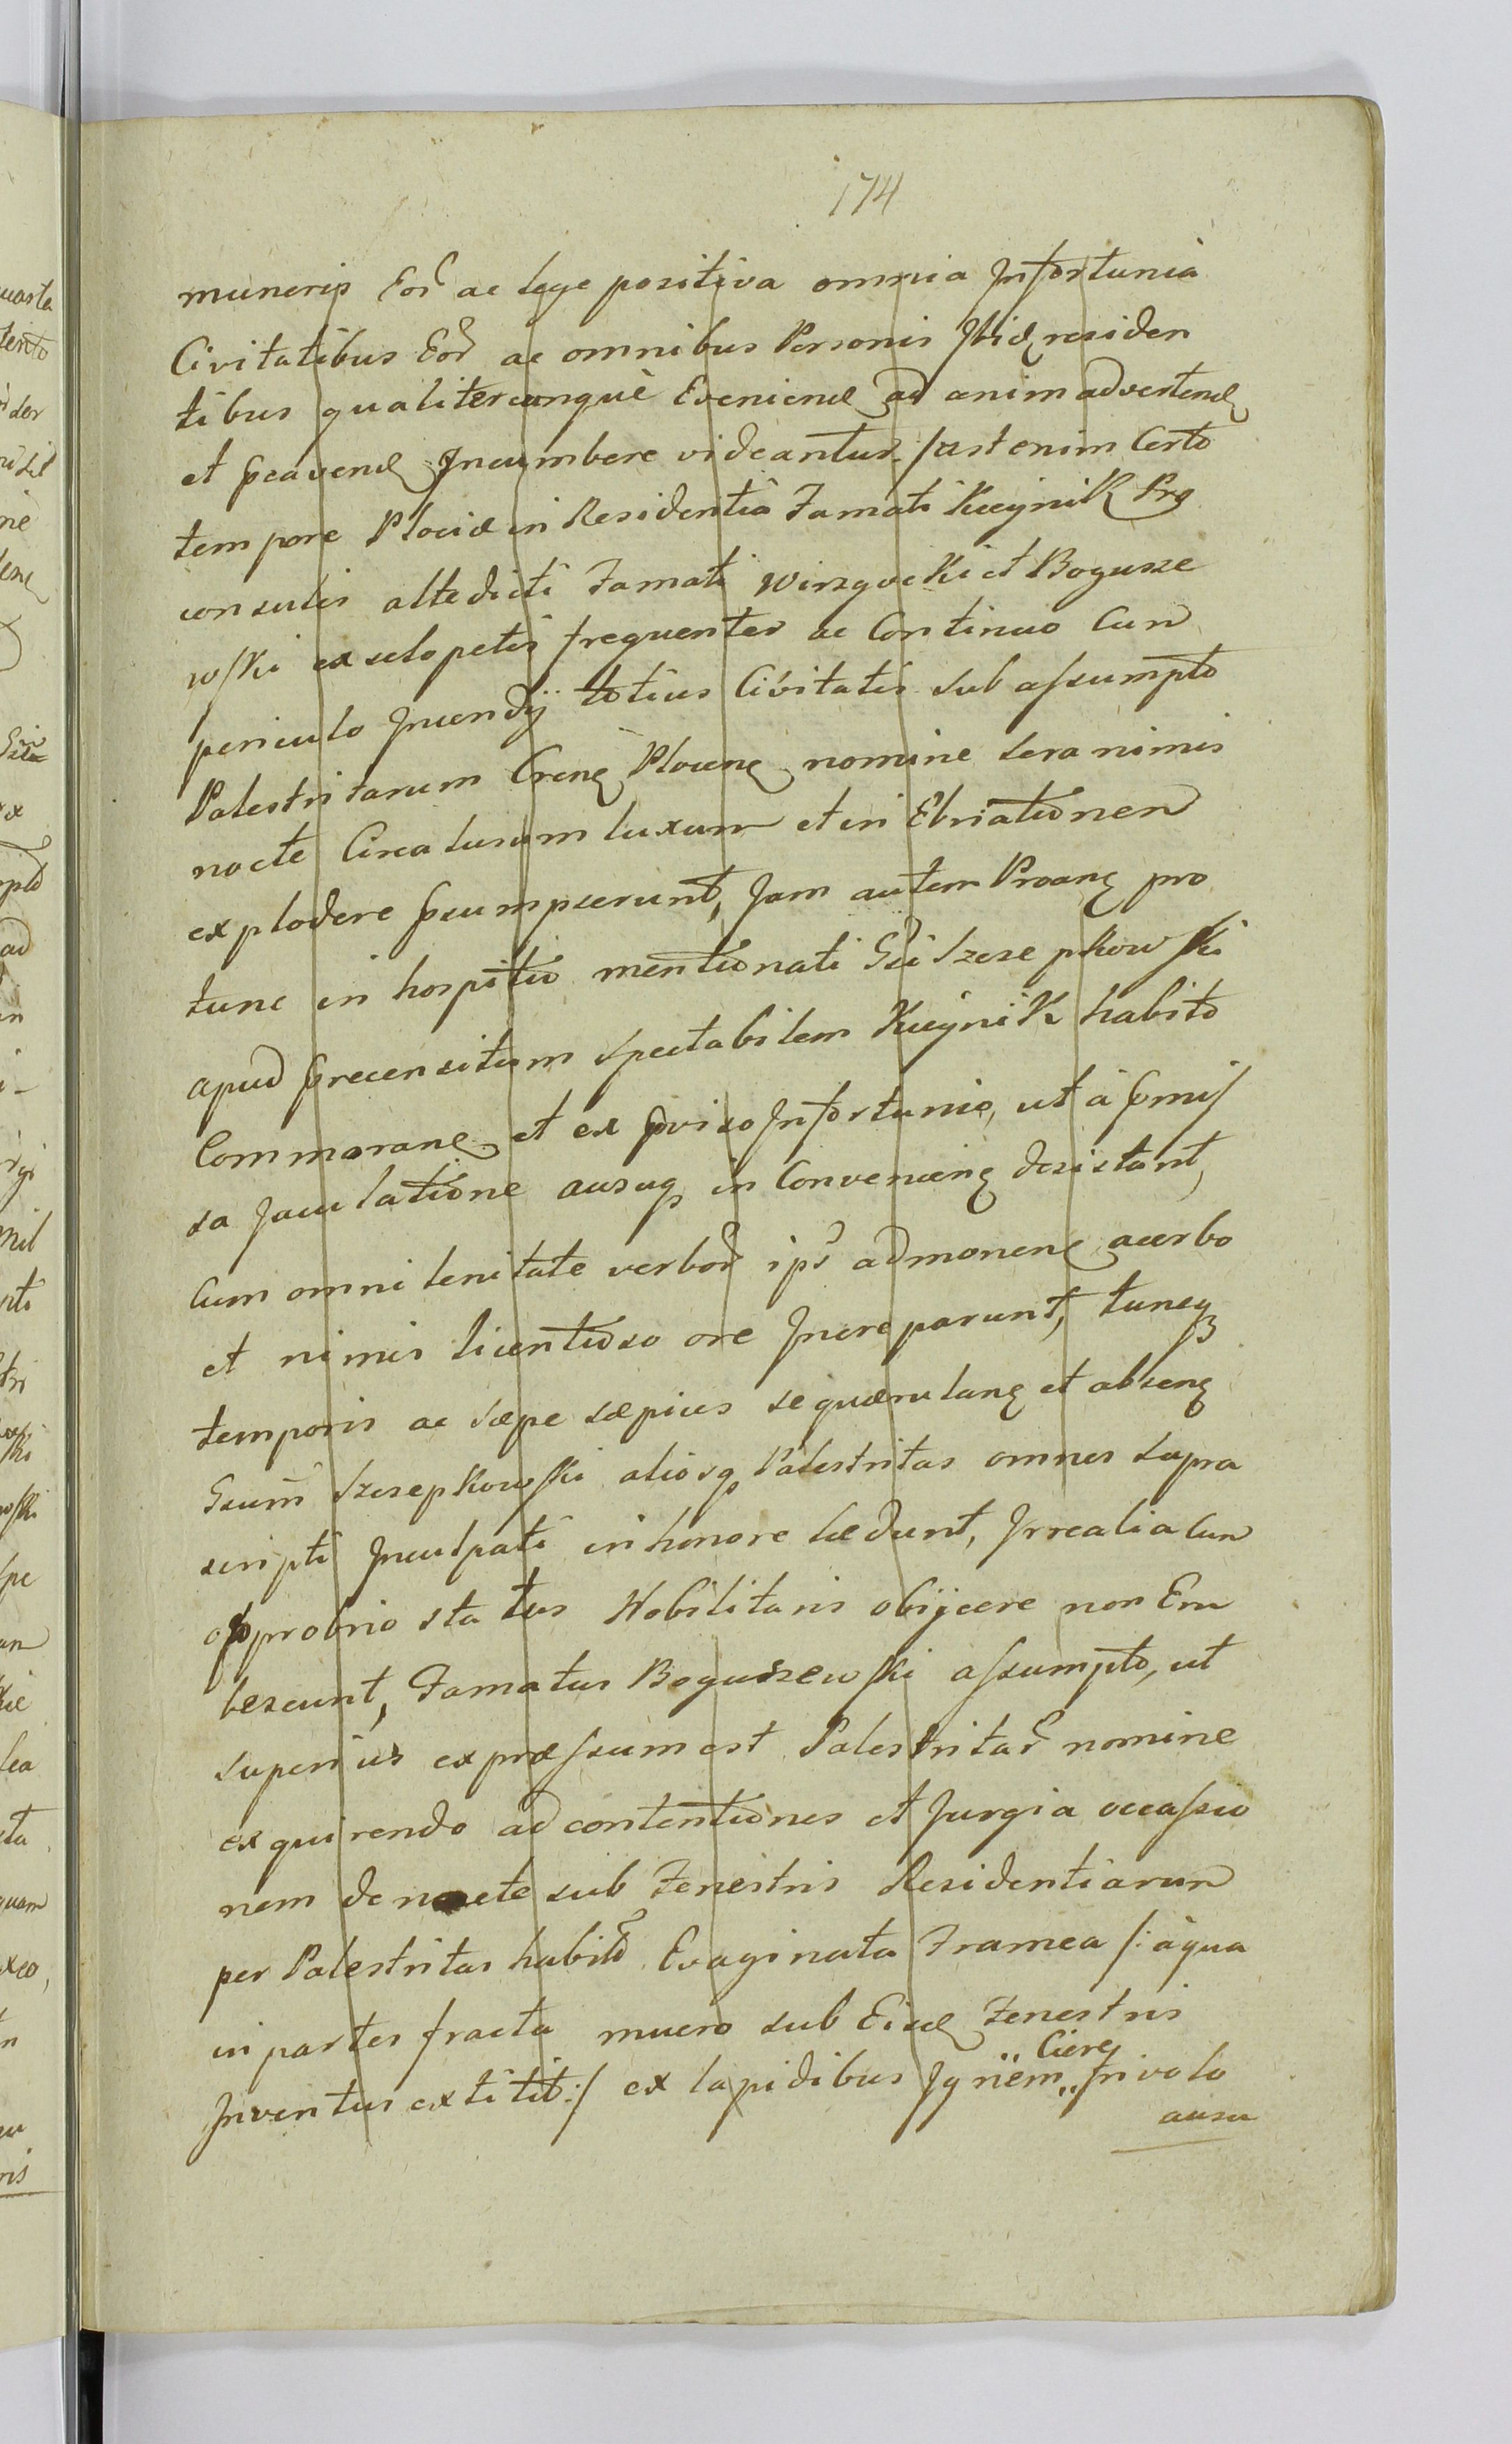 174
muneris Eor ac lege positiva omnia Infortunia
Civitatibus Eor ac omnibus Personis Ibid residen
tibus qualitercunque Eveniend ad animadvertend
et pcavend Incumbere videantur. fast enim Certo
tempore Plociæ in Residentia Famati Kuynik Pro
consulis altedicti Famati Wirzgocki et Bogusze
wski ex sclopetis frequenter ac Continuo Cun
periculo Incendÿ totius Civitatis sub assumpto
Palestritarum Cren Plocen nomine sera nimis
nocte Circa lusum luxum et in Ebriationen
explodere psumpserunt, Jam autem Proan pro
tunc in hospitio mentionati Gsi Szczepkowski
apud precensitum spectabilem Kuynik habito
Commoran et ex pviso Infortunio, ut à pmis
sa Jaculatione ausuq in Convenien desistant,
Cum omni lenitate verbor ips admonen acerbo
et nimis licentioso ore Increparunt, tuncq
temporis ac sæpe sæpius se quærulan et absen
Gsum Szczepkowski aliosq Palestritas omnes supra
scripti Inculpati in honore lædunt, Irrealia Cun
opprobrio status Nobilitaris obijcere non Eru
bescunt, Famatus Boguszewski assumpto, ut
superius expræssum est Palestritar nomine
exquirendo ad contentiones et Jurgia occasio
nem de nocte sub Fenestris Residentiarun
per Palestritas habit Evaginata Framea /: à qua
in partes fracta mucro sub Eisd Fenestris
Inventus extitit :/ ex lapidibus Ignem Ciere frivolo
ausu